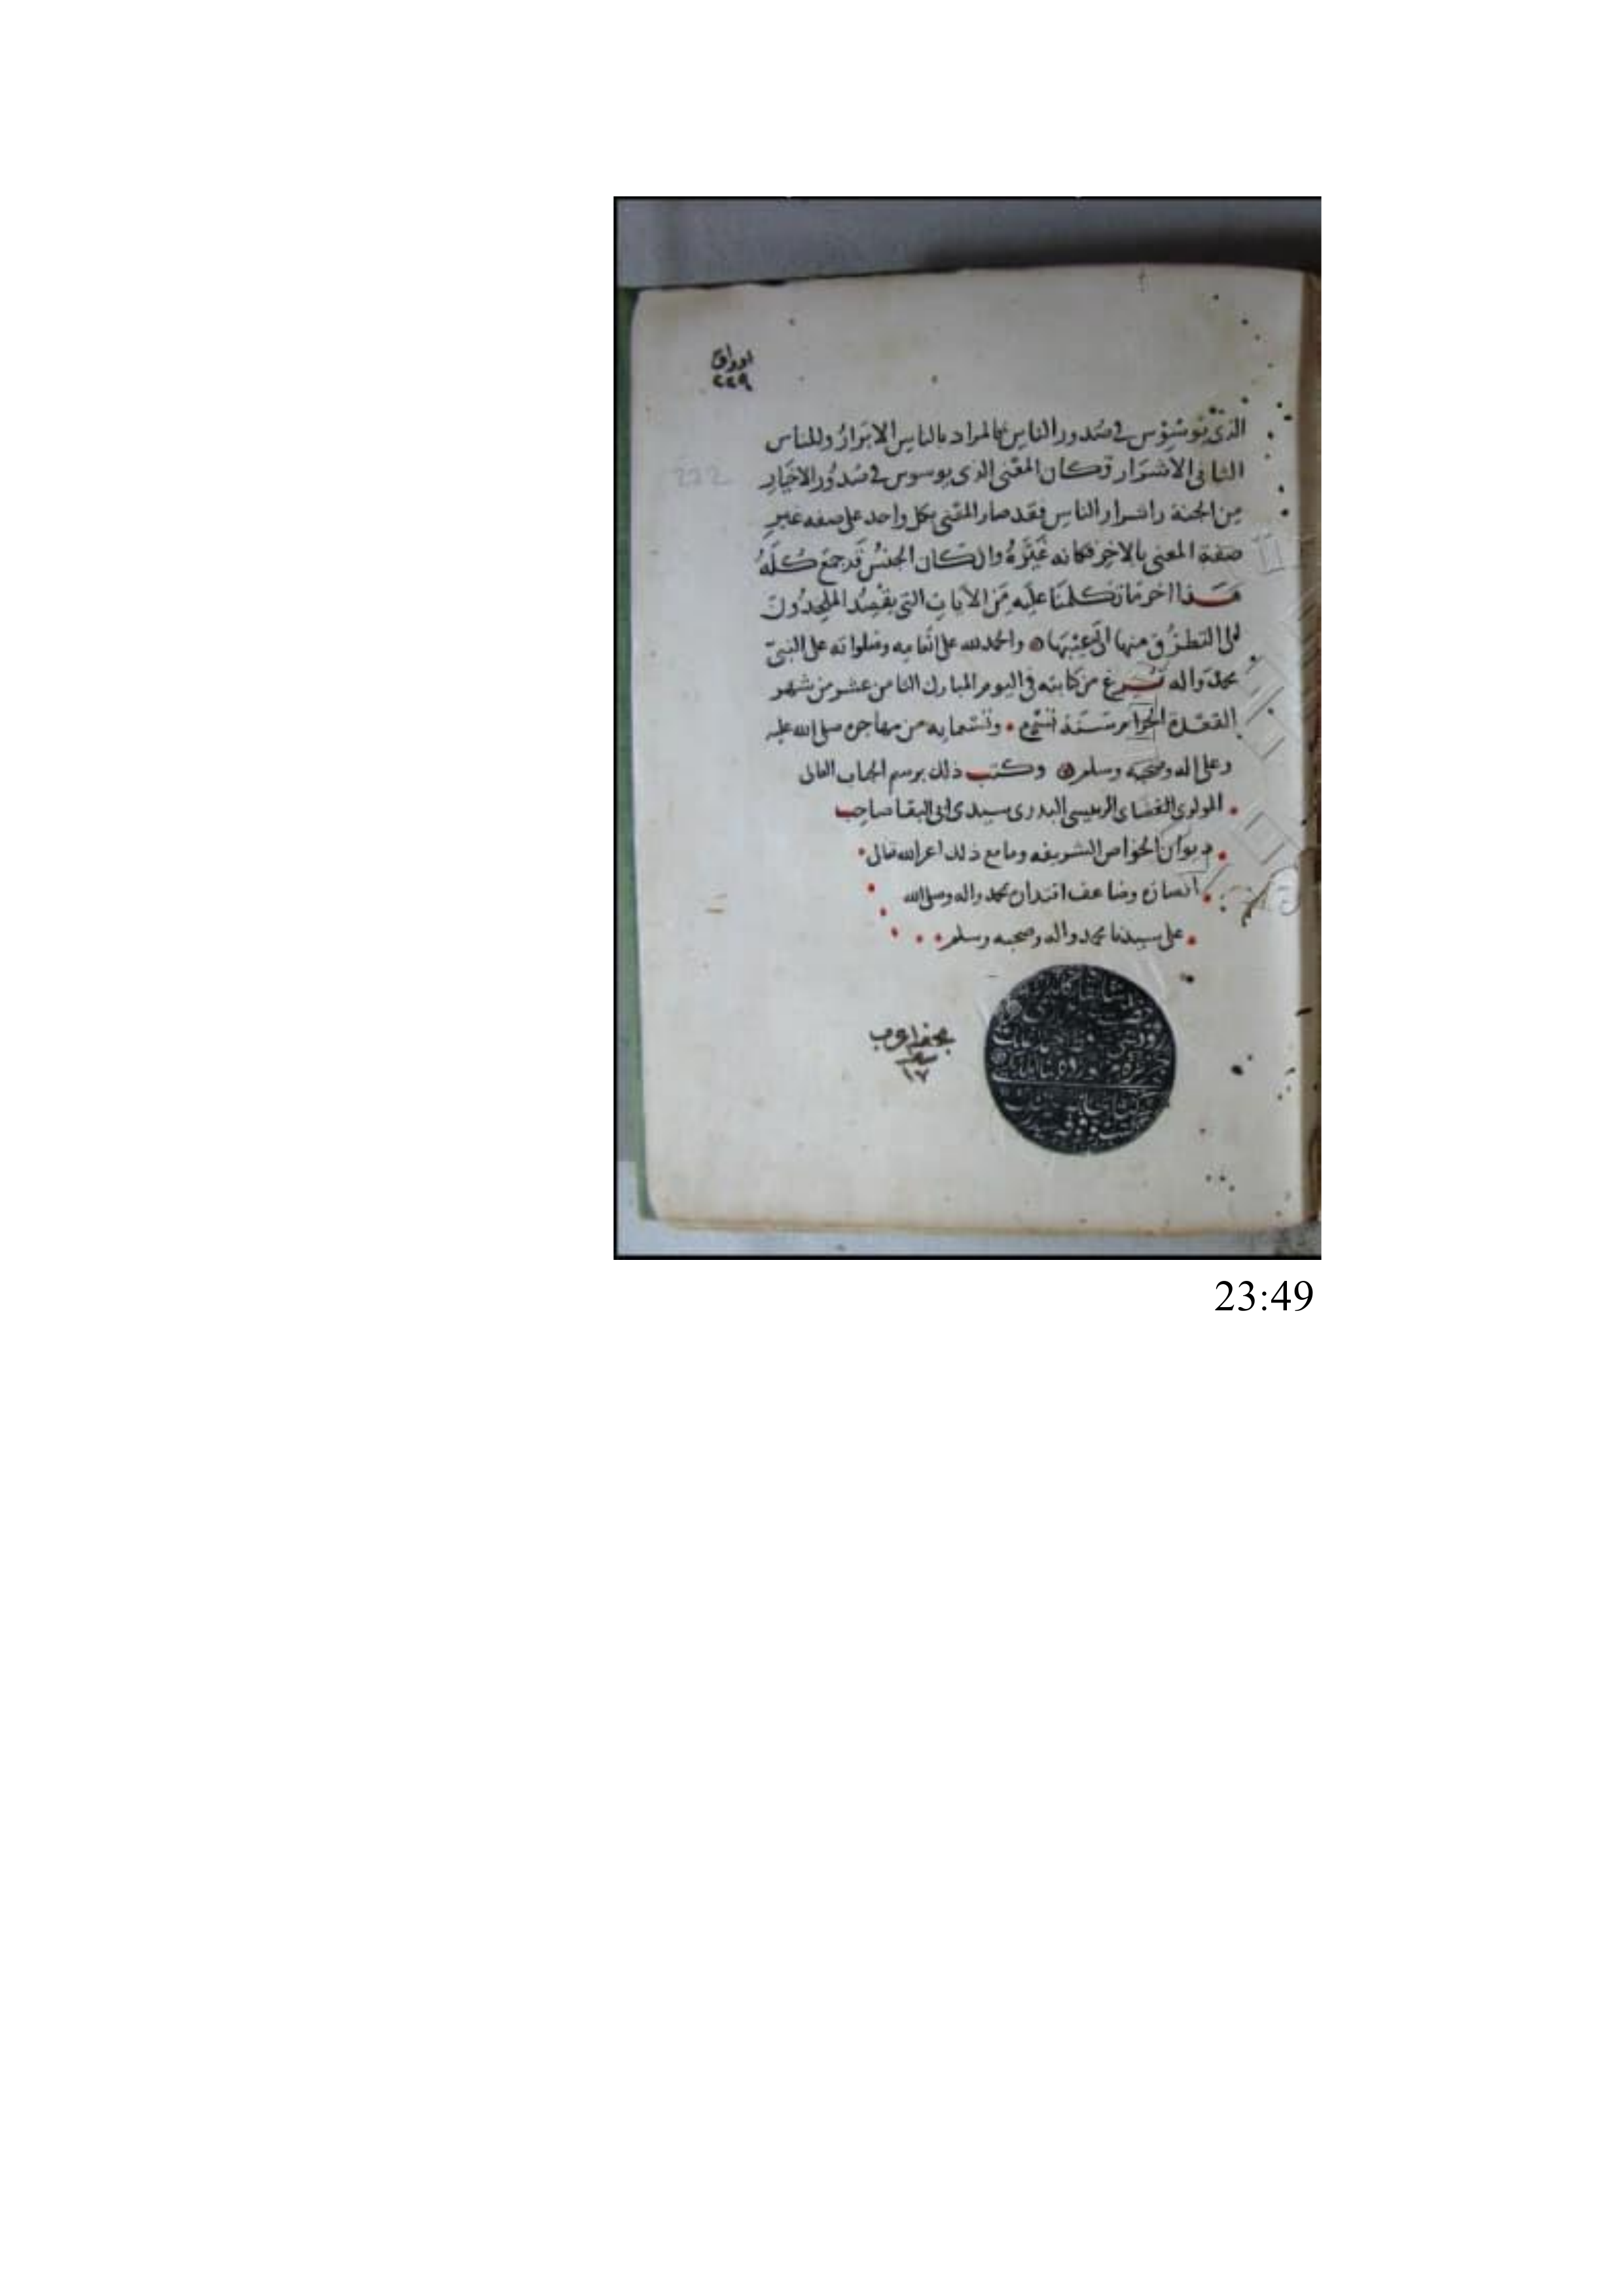 اوراق
٢٢٩
الذى يوسوس في صدور الناس فالمراد بالناس الابرار وللناس
222
الثانى الاشرار وكان المعنى الذى يوسوس في صدور الاخيار
من الجنة واشرار الناس فقد صار المعنى بكل واحد على صفه غير
صفة المعنى بالاخر فكانه غيره وان كان الجنس قد جمع كله
هذا اخر ما تكلمنا عليه من الآيات التى يقصد الملحدون
التطرق منها الى عيبها والحمد لله على انعامه وصلواته على النبي
محمد واله فرغ من كتابته فى اليوم المبارك الثامن عشر من شهر
القعدة الحرام سنة وتسعمايه من مهاجره صلى الله عليه
وعلى اله وصحبه وسلم وكتب ذلك برسم الجناب العالى
المولوى القضاى الرييسى البدرى سيدى ابى البقا صاحب
ديوان الخواص الشريفه وما مع ذلك اعز الله تعالى
انصاره وضاعف اقتداره محمد واله وصلى الله
على سيدنا محمد واله وصحبه وسلم
١٧
23:49